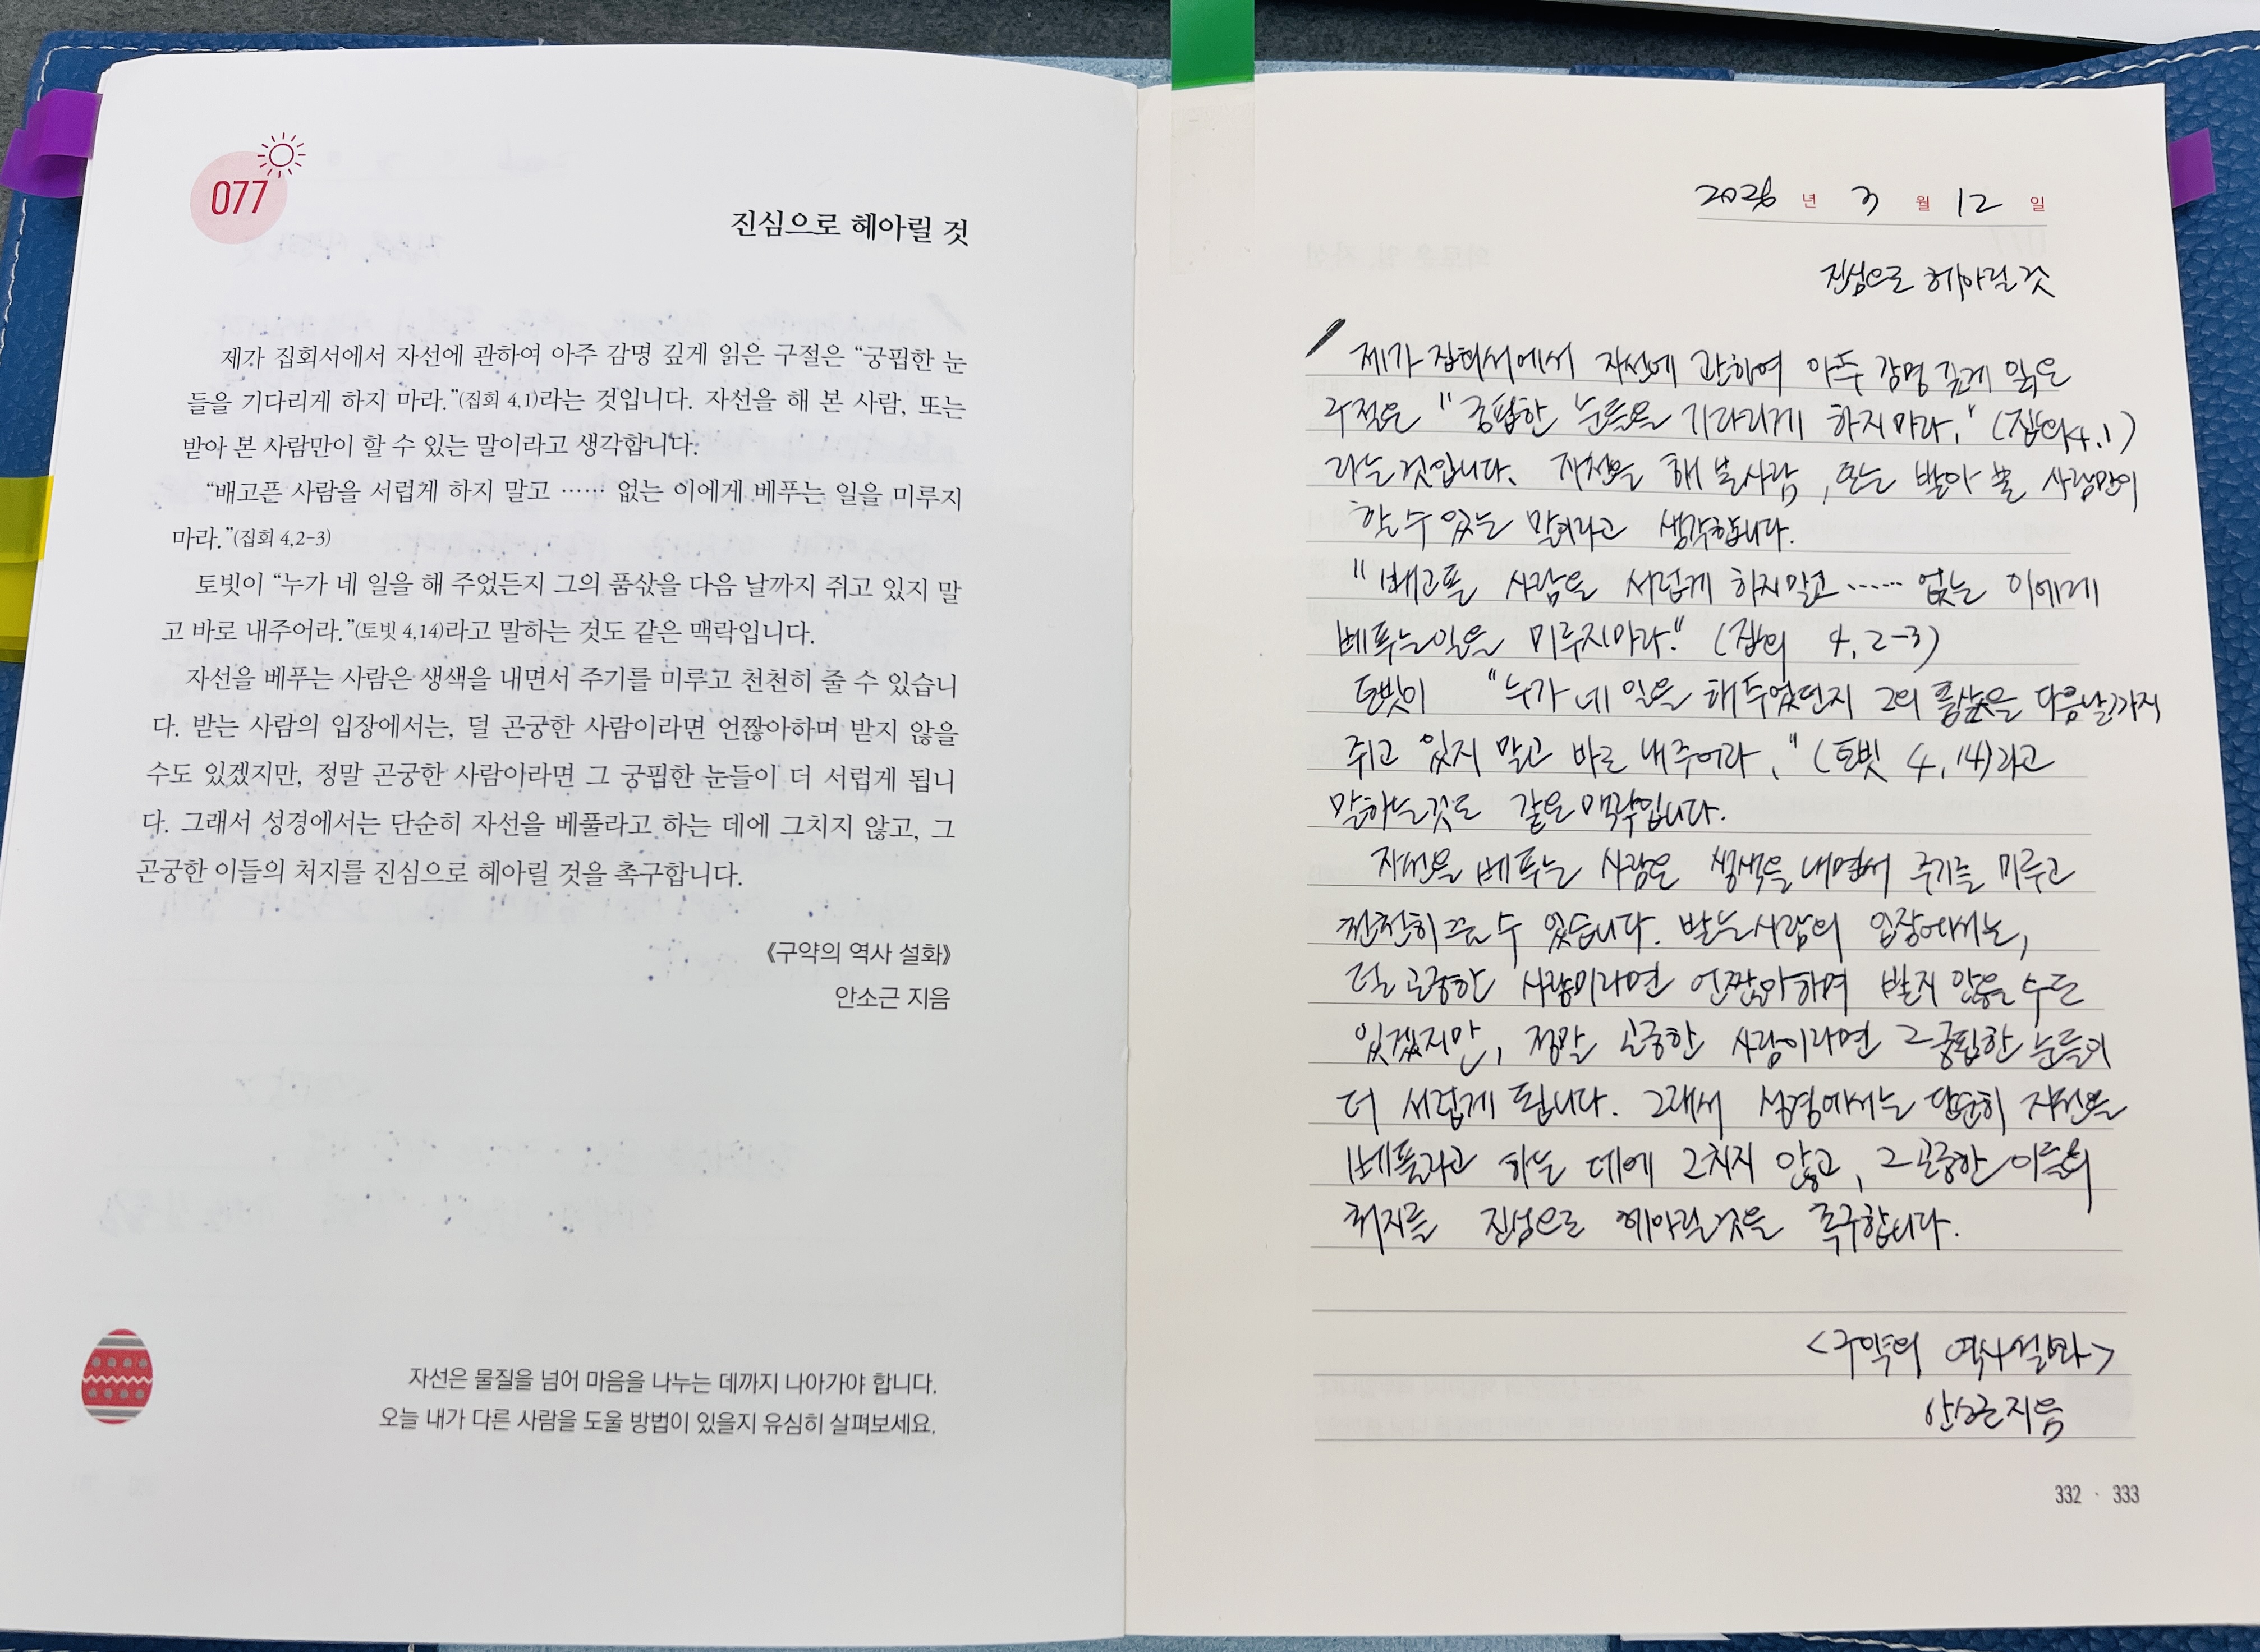 077
진심으로 헤아릴 것
제가 집회서에서 자선에 관하여 아주 감명 깊게 읽은 구절은 “궁핍한 눈
들을 기다리게 하지 마라.”(집회 4,1)라는 것입니다. 자선을 해 본 사람, 또는
받아 본 사람만이 할 수 있는 말이라고 생각합니다.
“배고픈 사람을 서럽게 하지 말고 …… 없는 이에게 베푸는 일을 미루지
마라.”(집회 4,2-3)
토빗이 “누가 네 일을 해 주었든지 그의 품삯을 다음 날까지 쥐고 있지 말
고 바로 내주어라.”(토빗 4,14)라고 말하는 것도 같은 맥락입니다.
자선을 베푸는 사람은 생색을 내면서 주기를 미루고 천천히 줄 수 있습니
다. 받는 사람의 입장에서는, 덜 곤궁한 사람이라면 언짢아하며 받지 않을
수도 있겠지만, 정말 곤궁한 사람이라면 그 궁핍한 눈들이 더 서럽게 됩니
다. 그래서 성경에서는 단순히 자선을 베풀라고 하는 데에 그치지 않고, 그
곤궁한 이들의 처지를 진심으로 헤아릴 것을 촉구합니다.
《구약의 역사 설화》
안소근 지음
자선은 물질을 넘어 마음을 나누는 데까지 나아가야 합니다.
오늘 내가 다른 사람을 도울 방법이 있을지 유심히 살펴보세요.
2026 년 3 월 12 일
진심으로 헤아릴 것
제가 집회서에서 자선에 관하여 아주 감명 깊게 읽은
구절은 "궁핍한 눈들을 기다리게 하지 마라." (집회4,1)
라는 것입니다. 자선을 해 본 사람, 또는 받아 본 사람만이
할 수 있는 말이라고 생각합니다.
"배고픈 사람을 서럽게 하지 말고 …… 없는 이에게
베푸는 일을 미루지 마라." (집회 4,2-3)
토빗이 "누가 네 일을 해주었던지 그의 품삯을 다음날까지
쥐고 있지 말고 바로 내주어라." (토빗 4,14)라고
말하는 것도 같은 맥락입니다.
자선을 베푸는 사람은 생색을 내면서 주기를 미루고
천천히 줄 수 있습니다. 받는 사람의 입장에서는,
덜 곤궁한 사람이라면 언짢아하며 받지 않을 수도
있겠지만, 정말 곤궁한 사람이라면 그 궁핍한 눈들이
더 서럽게 됩니다. 그래서 성경에서는 단순히 자선을
베풀라고 하는 데에 그치지 않고, 그 곤궁한 이들의
처지를 진심으로 헤아릴 것을 촉구합니다.
<구약의 역사 설화>
안소근 지음
332 · 333